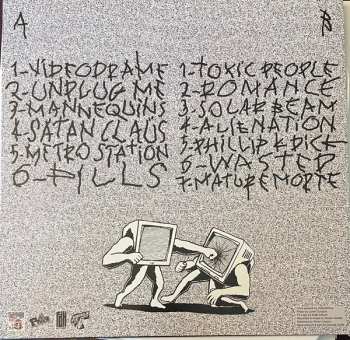 A
1-VIDEODRAME
2-UNPLUG ME
3-MANNEQUINS
4-SATAN CLAÜS
5-METRO STATION
6-PILLS
B
1-TOXIC PEOPLE
2-ROMANCE
3-SOLAR BEAM
4-ALIENATION
5-PHILLIP K DICK
6-WASTED
7-NATURE MORTE